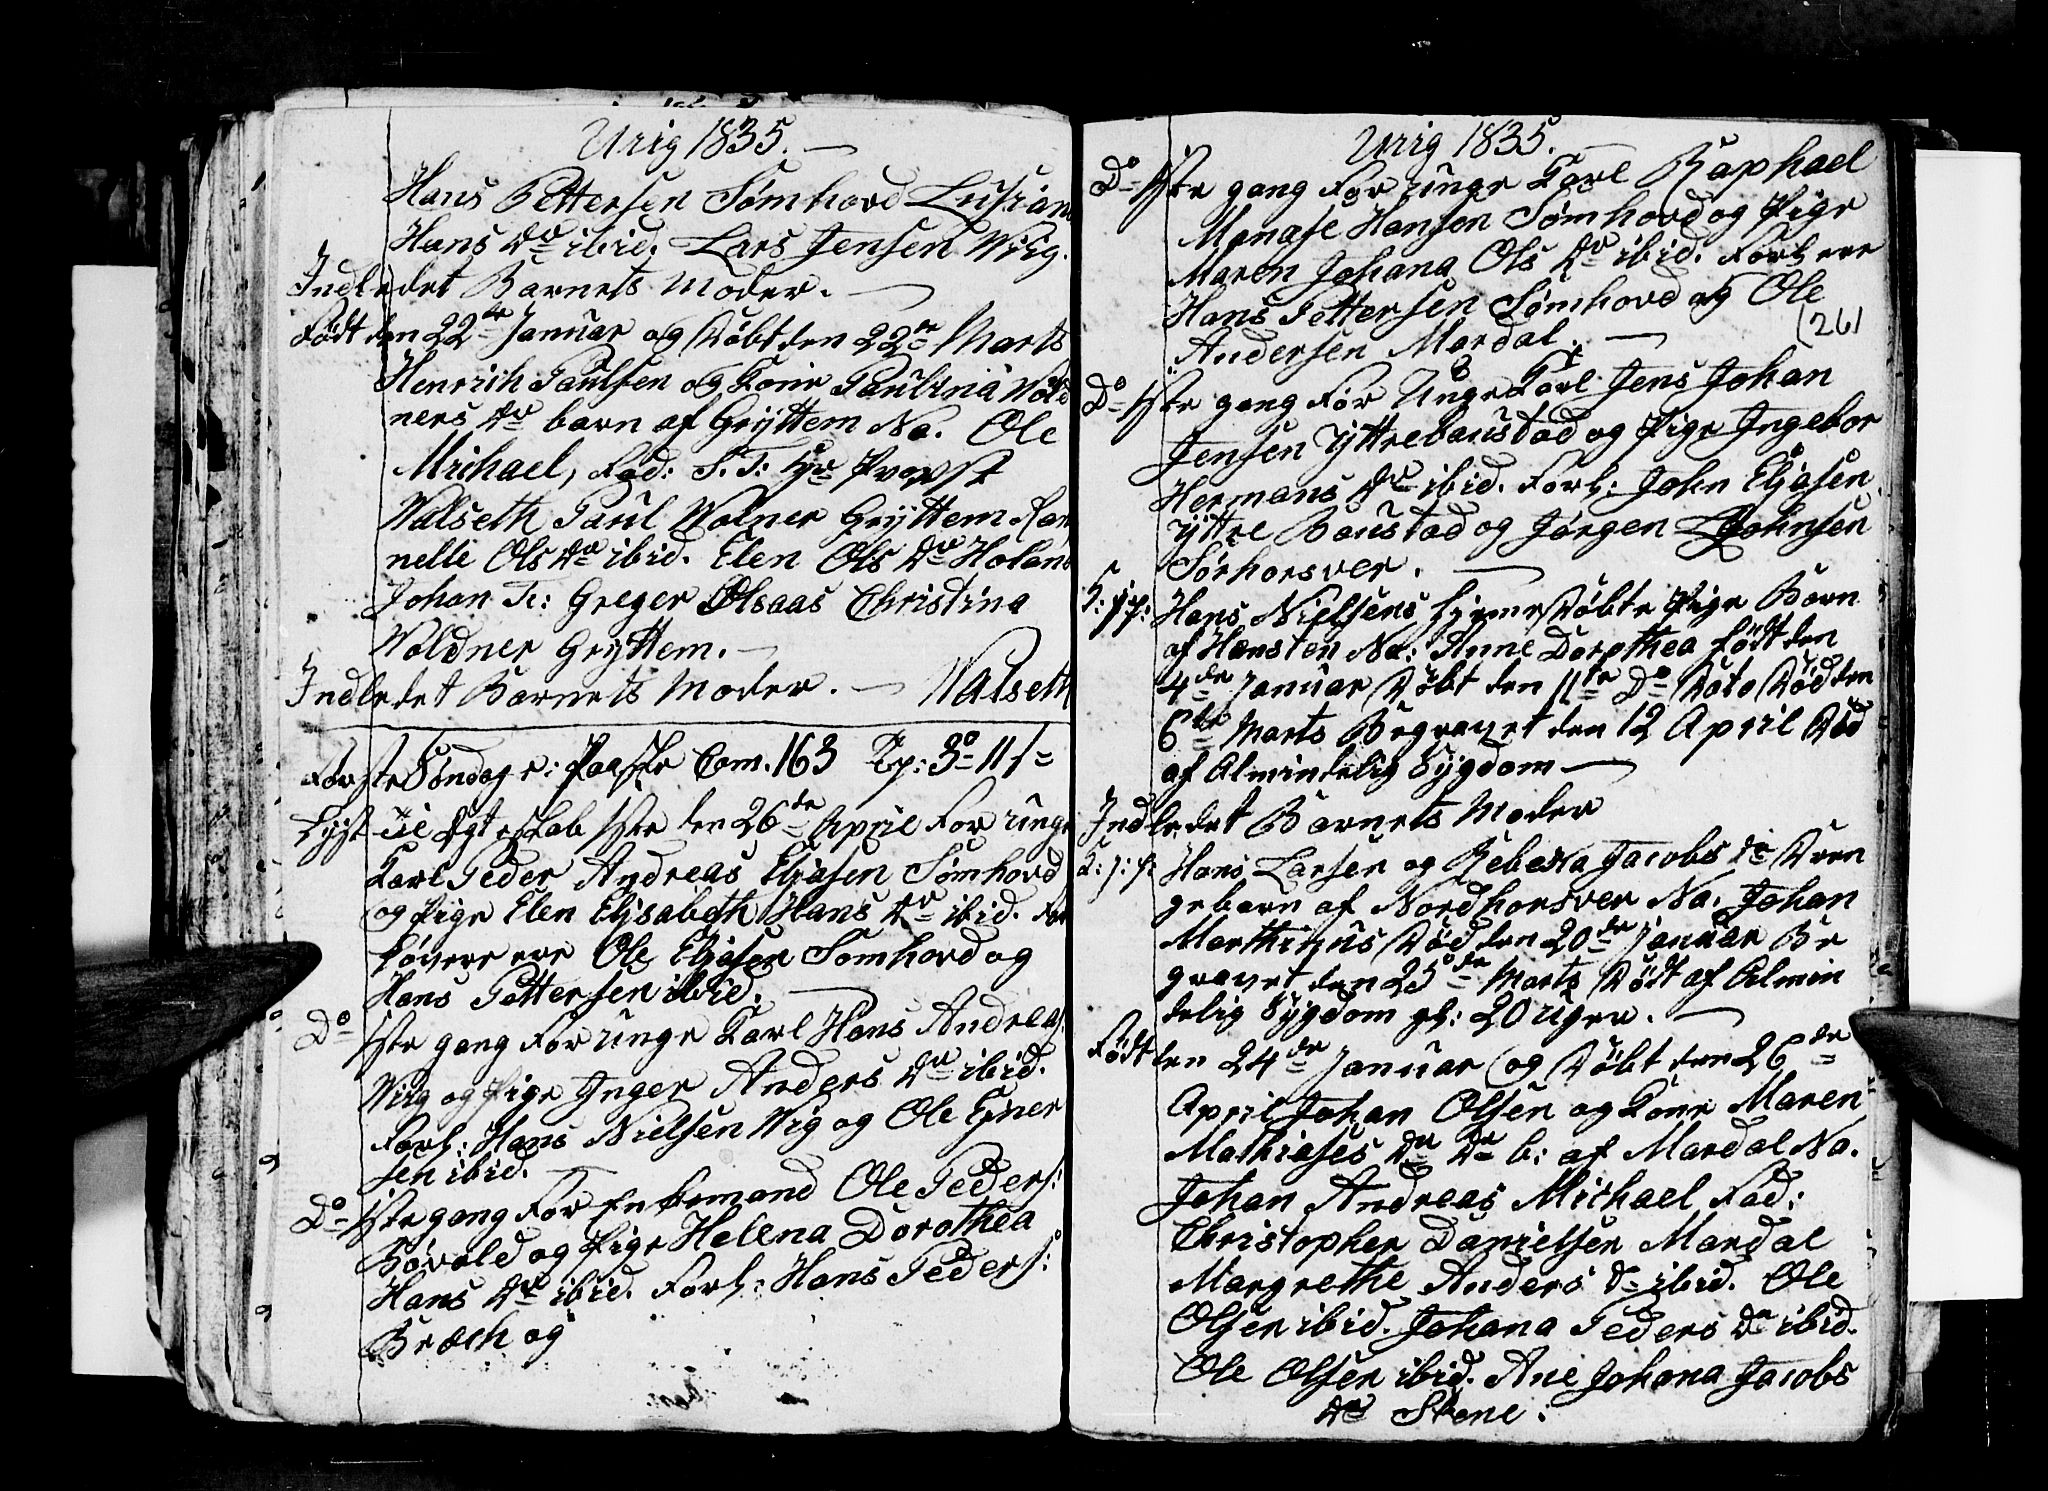 Urig 1835.
Hans Pettersen Sømhovd Lusiana
Hans Dr ibid. Lars Jensen Wiig.
Indledet Barnets Moder.
Født den 22de Januar og Døbt den 22de Marts
Henrich Paulsen og Kone Paulina Wold
ners Dr barn af Gryttem Na. Ole
Michael, Fad: S. T: Hr Provst
Walseth Paul Wolner Gryttem Ran
nelle Ols Dr ibid. Elen Ols Dr Holand
Johan Fr: Greger Olsaas Christina
Woldner Gryttem.
Indledet Barnets Moder. Walseth
Første Søndag e: Paaske Com. 163 Tp: 3o 11 f
Lyst til Egteskab 1ste den 26de April For unge
Karl Peder Andreas Eliasen Sømhovd
og Pige Elen Elisabeth Hans Dr ibid. For
løvere ere Ole Eljasen Sømhovd og
Hans Pettersen ibid.
Do 1ste gang For unge Karl Hans Andreas:
Wiig og Pige Inger Anders Dr ibid.
Forl: Hans Nielsen Wig og Ole Ejner
sen ibid.
Do 1ste gang For Enkemand Ole Peders:
Bøvald og Pige Helena Dorothea
Hans Dr ibid. Forl: Hans Peders:
Bræch og
Urig 1835.
Do 1ste gang For unge Karl Raphael
Manase Hansen Sømhovd og Pige
Maren Johana Ols Dr ibid. Forl: ere
Hans Pettersen Sømhovd og Ole
Andersen Mardal.
261
Do 1ste gang For Unge Karl Jens Johan
Jensen Yttrebaustad og Pige Ingebor
Hermans Dr ibid. Forl: John Eljasen
Yttre Baustad og Jørgen Johnsen
Sørhorsver.
T: j: p: Hans Nielsens Hjemedøbte Pige Barn
af Hansten Na: Anne Dorothea født den
4de Januar Døbt den 11te Do Dato Død den
6te Marts Begravet den 12 April Død
af Almindelig Sygdom
Indledet Barnets Moder
T: j: p: Hans Larsen og Rebekka Jacobs Dr Dren
gebarn af Nordhorsver Na: Johan
Marthinus Død den 20de Januar Be
gravet den 25de Marts Dødt af Almin
delig Sygdom gl: 20 uger.
Født den 24de Januar og Døbt den 26de
April Johan Olsen og Kone Maren
Mathiases Dr De b: af Mardal Na.
Johan Andreas Michael Fad:
Christopher Danielsen Mardal
Margrethe Anders Dr ibid. Ole
Olsen ibid. Johana Peders Dr ibid.
Ole Olsen ibid. Ane Johana Jacobs
Dr Skene: